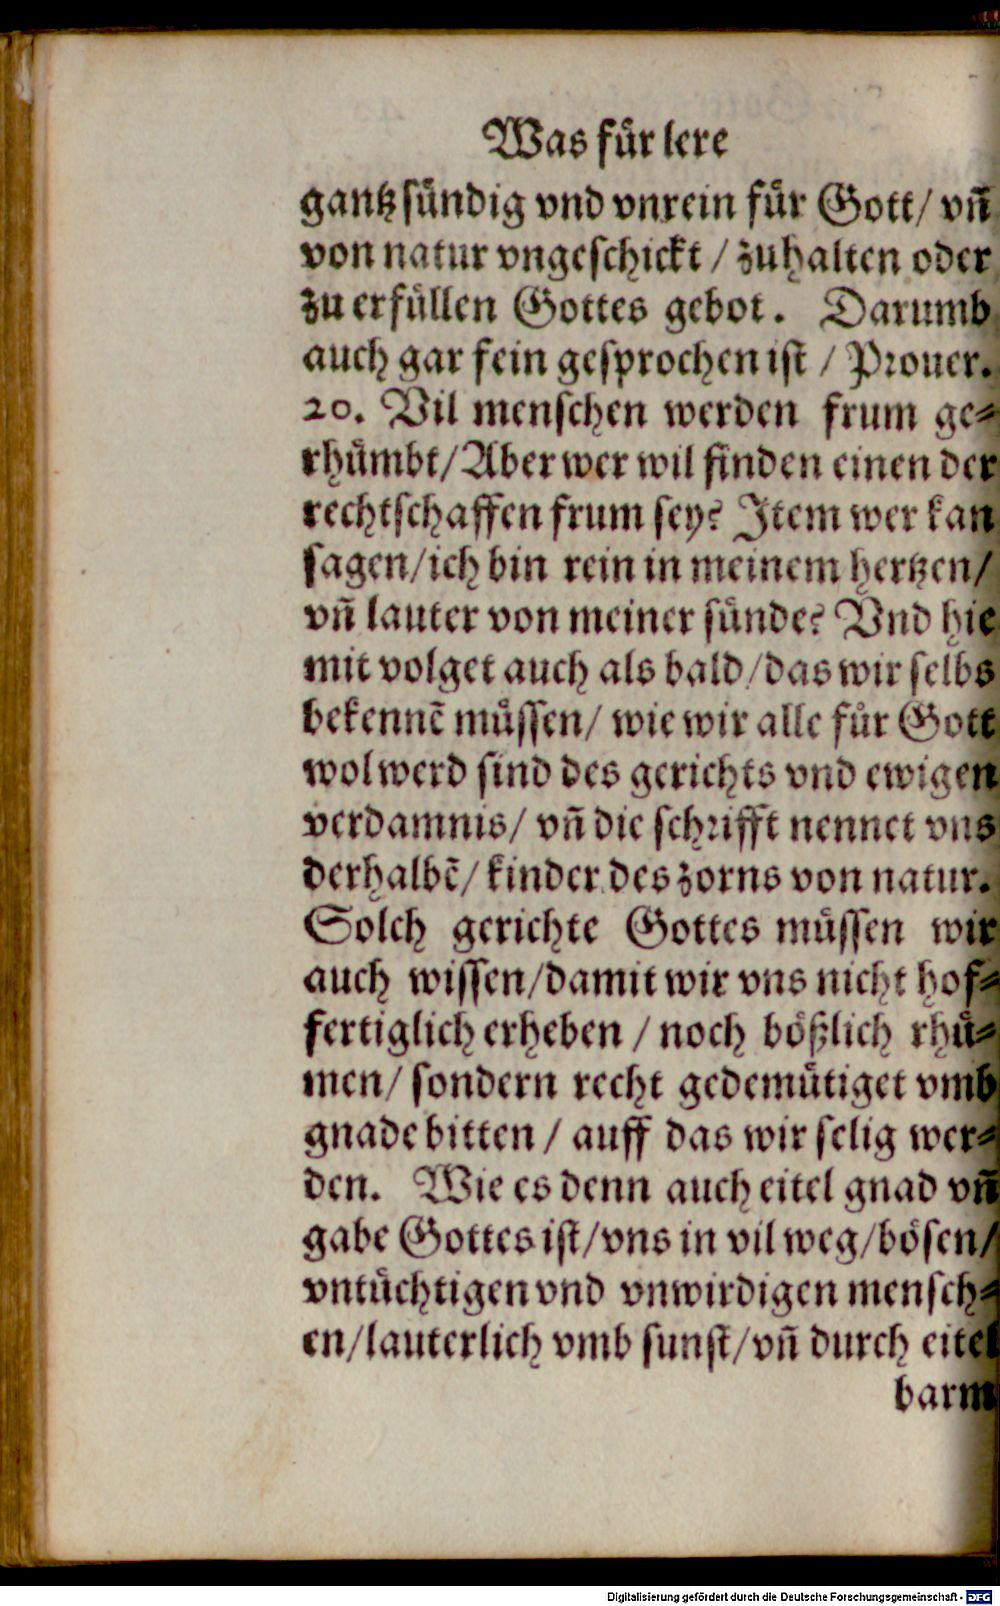 Was fuͤr lere
gantz suͤndig vnd vnrein fuͤr Gott/ vñ
von natur vngeschickt / zuhalten oder
zu erfuͤllen Gottes gebot. Darumb
auch gar fein gesprochen ist / Prouer.
20. Vil menschen werden frum ge⸗
rhuͤmbt/Aber wer wil finden einen der
rechtschaffen frum sey? Item wer kan
sagen/ich bin rein in meinem hertzen/
vñ lauter von meiner suͤnde? Vnd hie
mit volget auch als bald/das wir selbs
bekennē muͤssen/ wie wir alle fuͤr Gott
wolwerd sind des gerichts vnd ewigen
verdamnis/ vñ die schrifft nennet vns
derhalbē/ kinder des zorns von natur.
Solch gerichte Gottes muͤssen wir
auch wissen/damit wir vns nicht hof⸗
fertiglich erheben / noch boͤßlich rhuͤ⸗
men/ sondern recht gedemuͤtiget vmb
gnade bitten / auff das wir selig wer⸗
den. Wie es denn auch eitel gnad vñ
gabe Gottes ist/vns in vil weg/boͤsen/
vntuͤchtigen vnd vnwirdigen mensch⸗
en/lauterlich vmb sunst/vñ durch eitel
barm
Digitalisierung gefördert durch die Deutsche Forschungsgemeinschaft - DFG